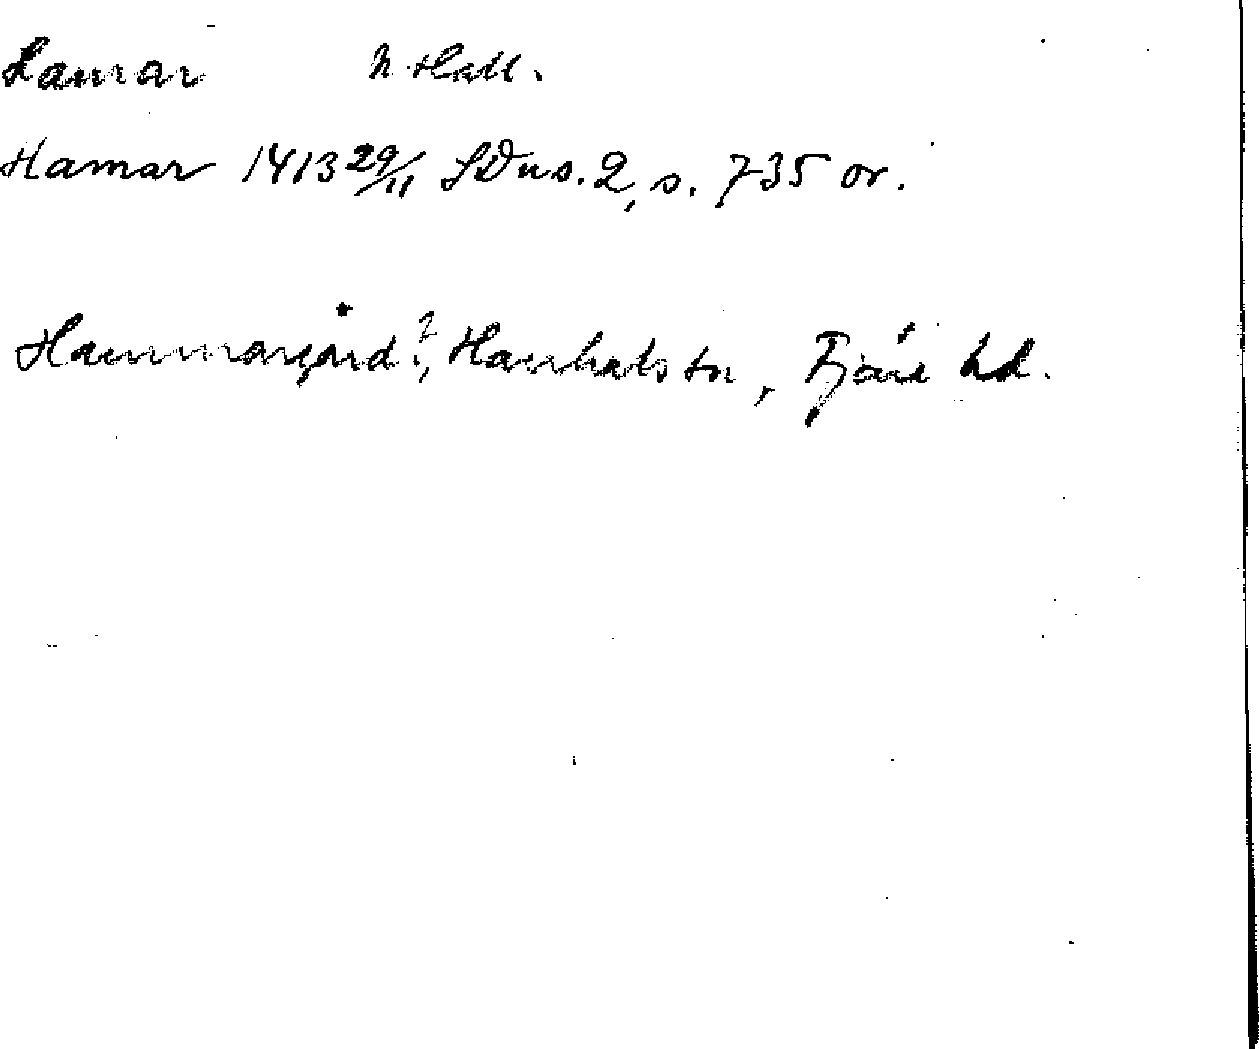 Hamar N. Hall.
Hamar 1413 29/11 SDns. 2, s. 735 or.
Hammargård?, Hanhals sn, Fjäre hd.